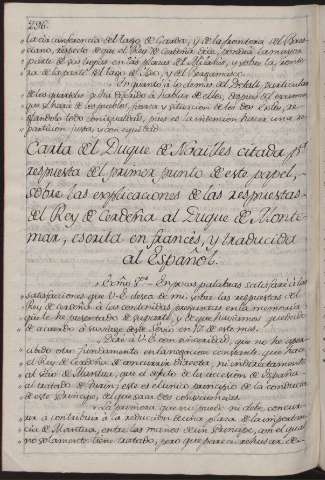 296.
la circunferencia del Lago de Garda, y de la frontera del
ciano, respecto de que el Rey de Cerdeña dice, pondrá la mayor
parte de sus tropas en las plazas del Milanés, y sobre la fronte-
ra de la parte del Lago de Iseo, y del Bergamasco.
En quanto a lo demas del Detalle particular
de los quarteles se ha dejado à de ellos, despues del examen
que se hará de los pueblos, forrages y situacion de los dos exercitos, re-
glandolo todo con igualdad, pues es la intencion hacer una re-
particion justa, y con equidad.
Carta del Duque de Noailles citada, pr.
respuesta del primer punto de este papel,
sobre las explicaciones de las respuestas
del Rey de Cerdeña al Duque de Monte-
mar, escrita en francés, y traducida
al Español.
Exmo. Sr. En pocas palabras satisfaré à las
satisfacciones que V.E. desea de mi, sobre las respuestas del
Rey de Cerdeña à las contenidas propuestas en la memoria
que le he presentado de su parte, y de que estuvimos
de acuerdo à su en 12 de este mes.
Diré à V.E. con sinceridad, que no he aper-
cibido otro fundamento en la repugnancia constante, que hace
el Rey de Cerdeña de concurrir directa, ni indirectamente
al sitio de Mantua, que el defecto de la accesion de España
al tratado de Turin; este es el unico principio de la conducta
de este Principe, del que saca dos consequencias.
La primera, que no puede ni debe concur-
rir à contribuir à la reduccion de una plaza de la importan-
cia de Mantua, entre las manos de un Principe, con el qual
no solamente tiene tratado, pero que parece rehusar de